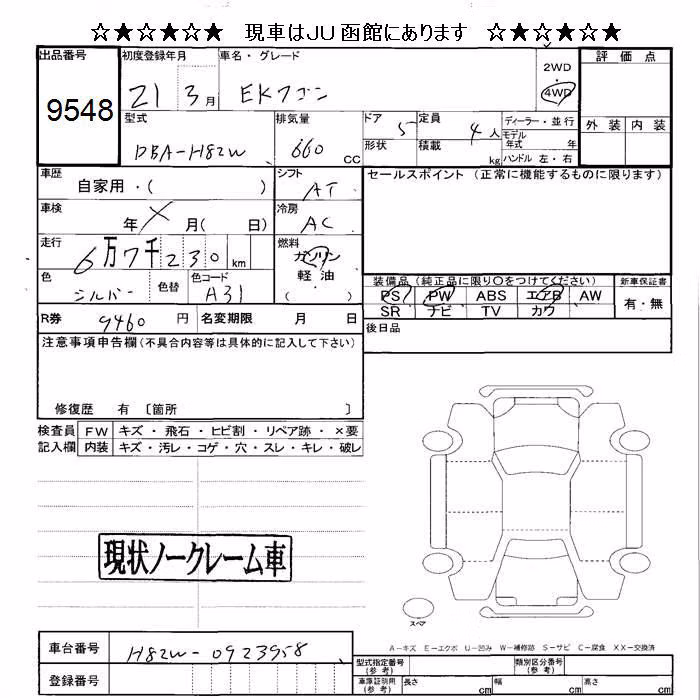 ☆★☆★☆★ 現車はJU函館にあります ☆★☆★☆★
出品番号 初度登録年月 車名・グレード 2WD 評価点
9548 21 3月 EKワゴン 4WD
型式 排気量 ドア 定員 ディーラー・並行 外装 内装
DBA-H82W 660 CC 5 4人 モデル年式 年
形状 積載 kg ハンドル 左・右
車歴 自家用・( ) シフト AT セールスポイント (正常に機能するものに限ります)
車検 年 × 月( 日) 冷房 AC
走行 6万7千230km 燃料 ガソリン 軽油 ( )
装備品 (純正品に限り○をつけてください) 新車保証書
色 シルバー 色替 色コード A31 PS PW ABS エアB AW 有・無
SR ナビ TV カワ
R券 9460円 名変期限 月 日 後日品
注意事項申告欄(不具合内容等は具体的に記入して下さい)
修復歴 有 〔箇所 〕
検査員 FW キズ・飛石・ヒビ割・リペア跡・×要
記入欄 内装 キズ・汚レ・コゲ・穴・スレ・キレ・破レ
現状ノークレーム車
スペア
A-キズ E-エクボ U-凹み W-補修跡 S-サビ C-腐食 XX-交換済
車台番号 H82W-0923958
型式指定番号(参考) 類別区分番号(参考)
登録番号 車庫証明用(参考) 長さ cm 幅 cm 高さ cm